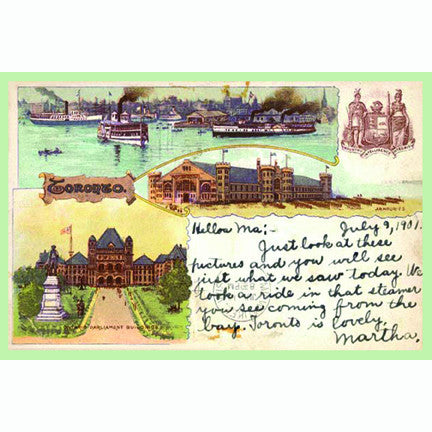 TORONTO.
ARMOURIES
Helloa Ma;- July 9, 1901.
Just look at these
pictures and you will see
just what we saw today. We
took a ride in that steamer
you see coming from the
bay. Toronto is lovely.
Martha.
PARLIAMENT BUILDINGS